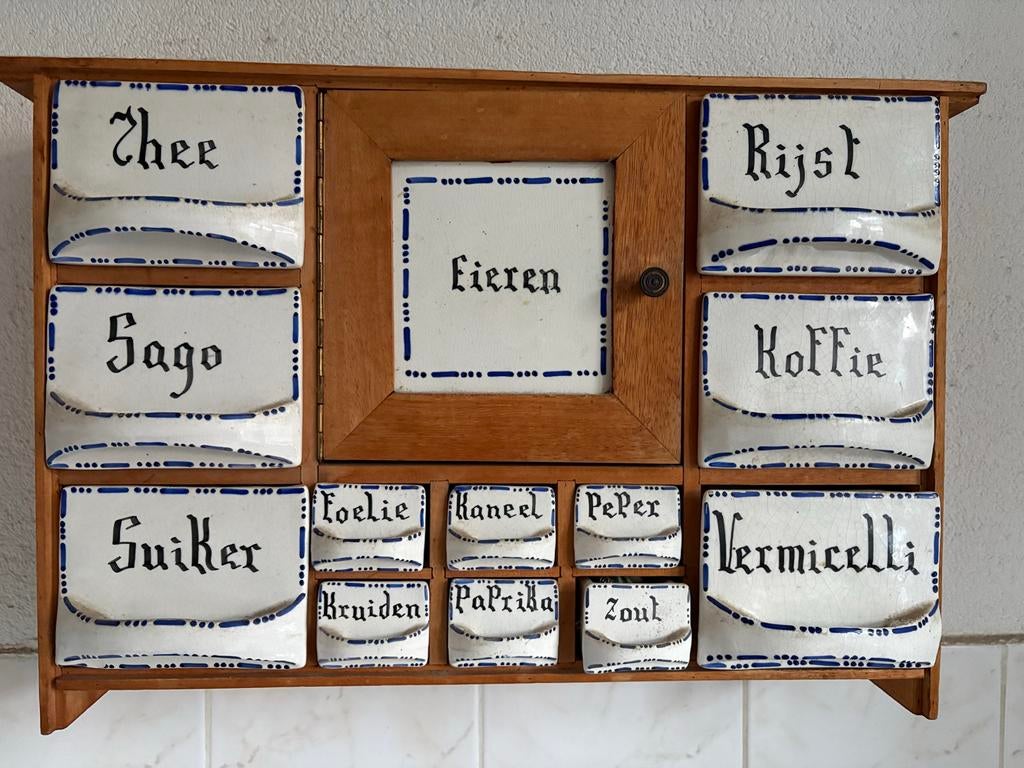 Thee
Eieren
Rijst
Sago
Koffie
Suiker
Foelie
Kaneel
Peper
Vermicelli
Kruiden
Paprika
Zout